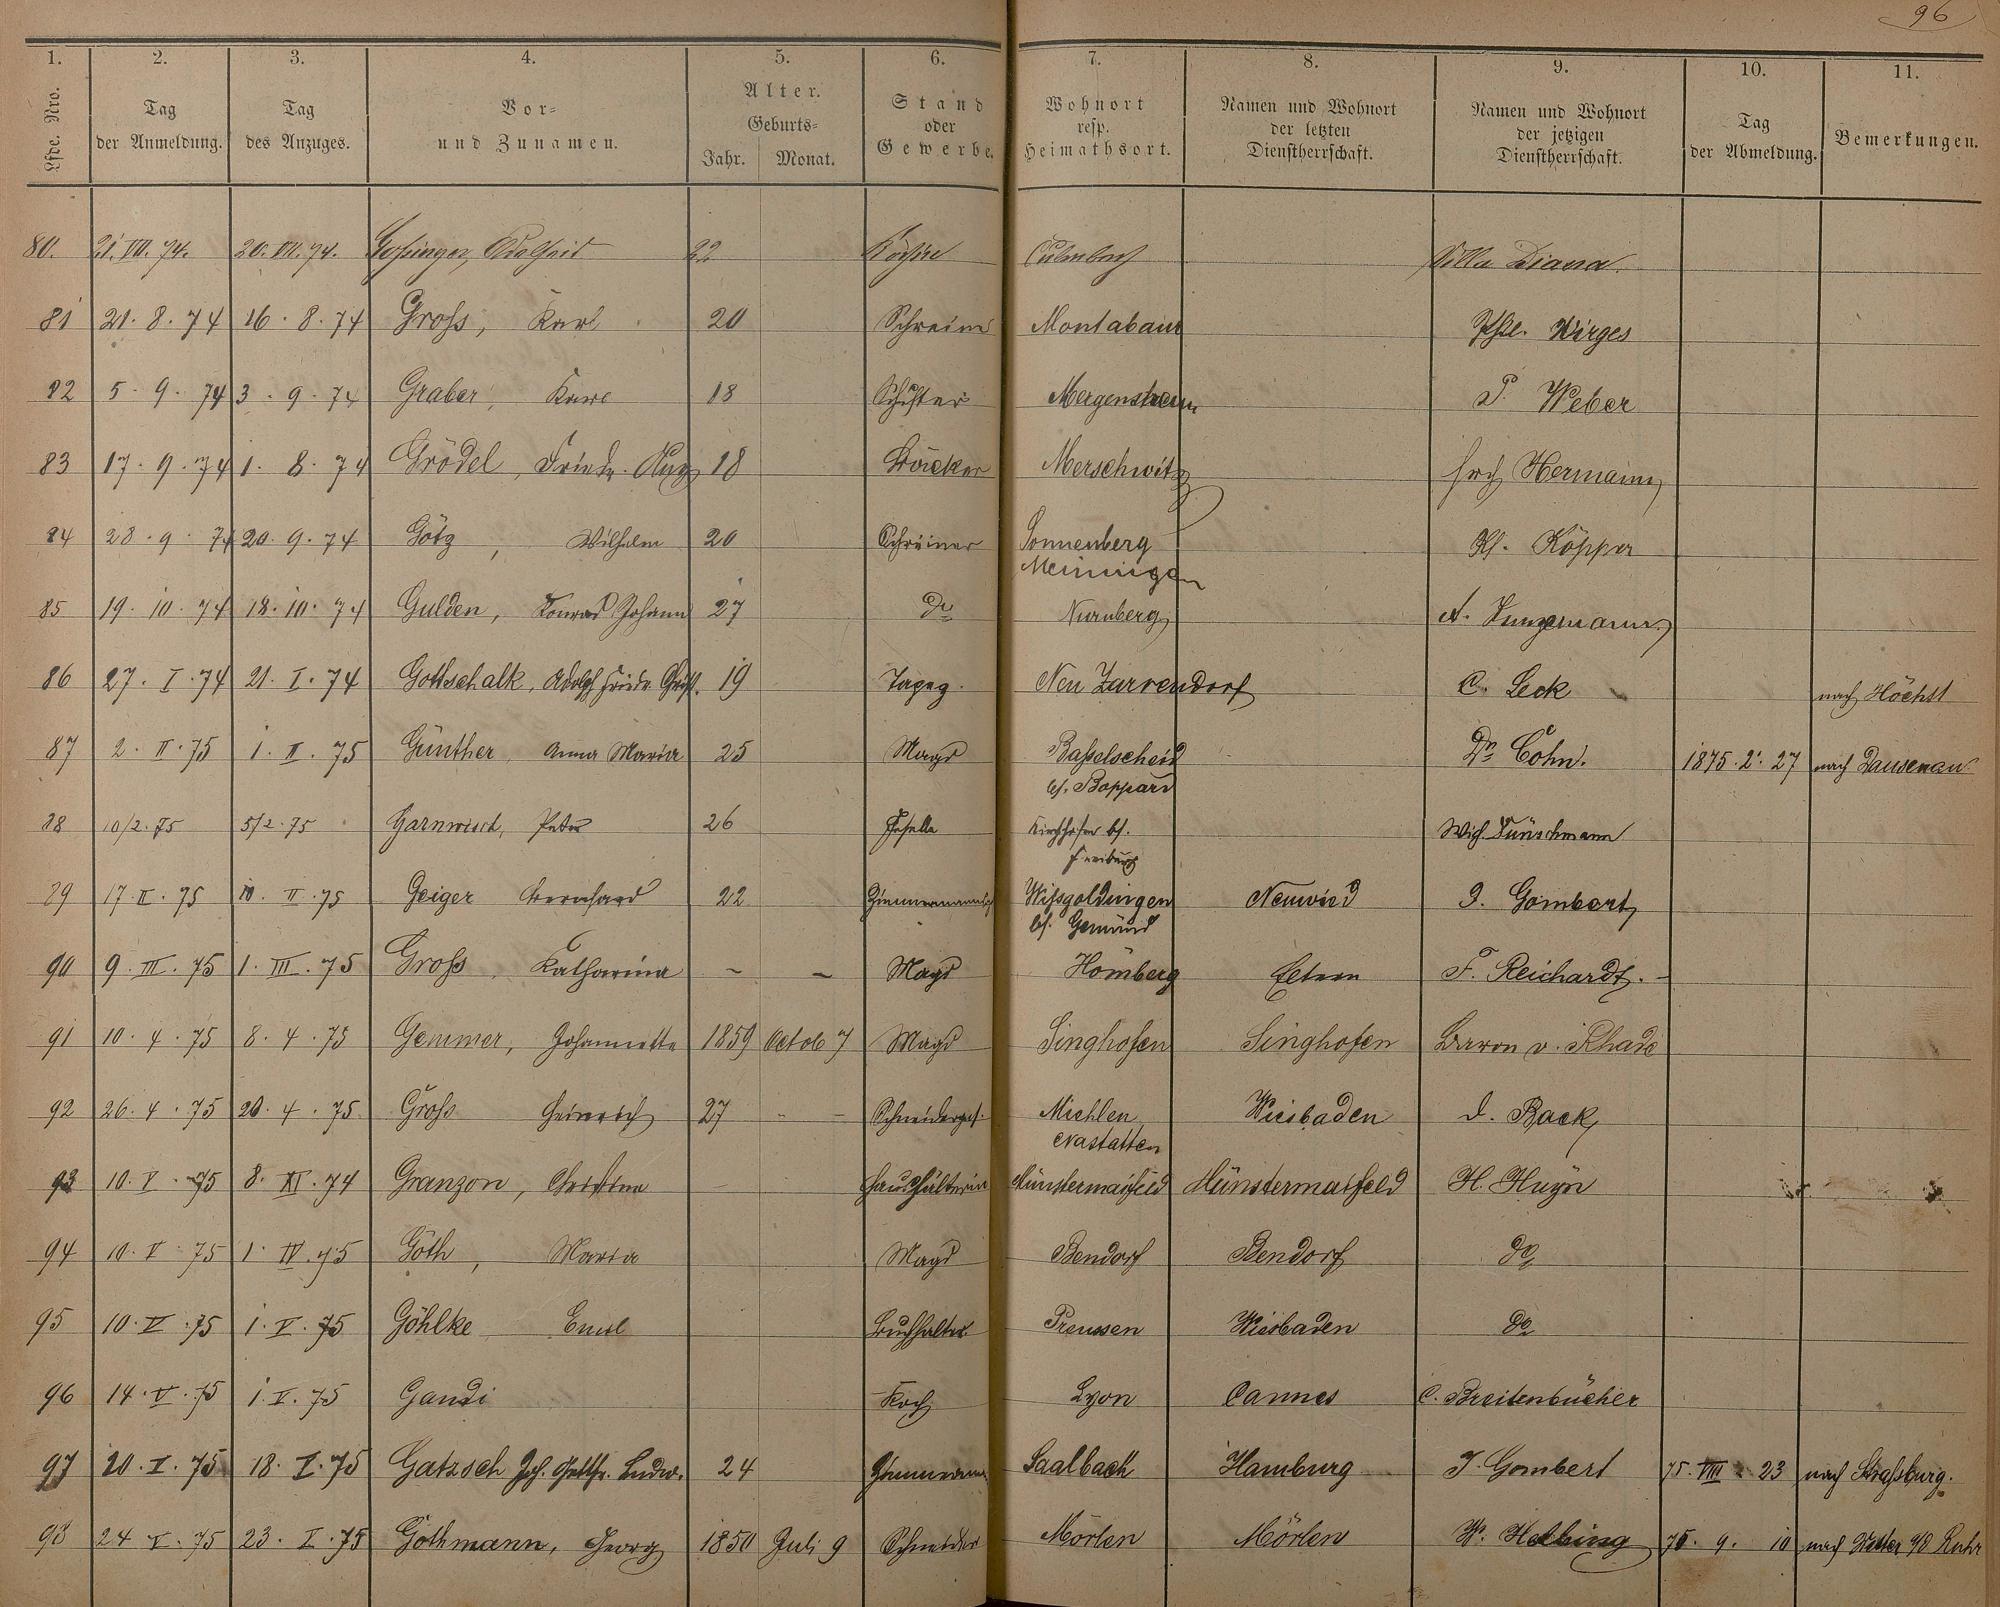 96
1. 2. 3. 4. 5. 6. 7. 8. 9. 10. 11.
Lfde. Nro. Tag der Anmeldung. Tag des Anzuges. Vor- und Zunamen. Alter. Geburts- Jahr. Monat. Stand oder Gewerbe. Wohnort resp. Heimathsort. Namen und Wohnort der letzten Dienstherrschaft. Namen und Wohnort der jetzigen Dienstherrschaft. Tag der Abmeldung. Bemerkungen.
80. 21. VII. 74. 20. VII. 74. 22 Culmbach Villa Diana.
81 21. 8. 74 16. 8. 74 Groß, Karl 20 Schreiner Montabaur Wirges
82 5. 9. 74 3. 9. 74 Graber, Karl 18 P. Weber
83 17. 9. 74 1. 8. 74 Grödel, Friedr. Aug 18 Bäcker Merschwitz Hermann
84 28. 9. 74 20. 9. 74 Götz, Wilhelm 20 Schreiner Sonnenberg Köpper
Meiningen
85 19. 10. 74 18. 10. 74 Gulden, Konrad Johann 27 do Nurnberg A.
86 27. I. 74 21. I. 74 Gottschalk, Adolph Friedr. 19 Neu Zarrendorf C. Leck nach Höchst
87 2. II. 75 1. II. 75 Günther, Anna Maria 25 Magd Basselscheid Dr. Cohn. 1875. 2. 27 nach Dausenau
bei Boppard
88 10/2. 75 5/2. 75 Peter 26 Geselle bei
Freiburg
89 17. II. 75 10. II. 75 Geiger Bernhard 22 Wißgoldingen Neuwied J. Gombert
bei Gemünd
90 9. III. 75 1. III. 75 Groß, Katharina – – Magd Homberg Eltern F. Reichardt. –
91 10. 4. 75 8. 4. 75 Gemmer, Johannette 1859 Octob 7 Magd Singhofen Singhofen Baron v.
92 26. 4. 75 20. 4. 75 Groß Heinrich 27 - – Schneiderges. Miehlen Wiesbaden Back
Nastatten
93 10. V. 75 8. XI. 74 Granzon, Christina Haushälterin Münstermaifeld Münstermaifeld H. Huyn
94 10. V. 75 1. IV. 75 Göth, Maria Magd Bendorf Bendorf do
95 10. V. 75 1. V. 75 Göhlke, Emil Buchhalter Preussen Wiesbaden do
96 14. V. 75 1. V. 75 Gandi Koch Lyon Cannes C. Breitenbücher
97 20. V. 75 18. V. 75 Gatzsch Joh. Gottfr. Ludw. 24 Zimmermann Saalbach Hamburg J. Gombert 75. VIII. 23 nach Straßburg.
98 24 V. 75 23. V. 75 Gothmann, Georg 1850 Juli 9 Schneider Mörlen Mörlen W. Helbing 75. 9. 10 nach Ruhr